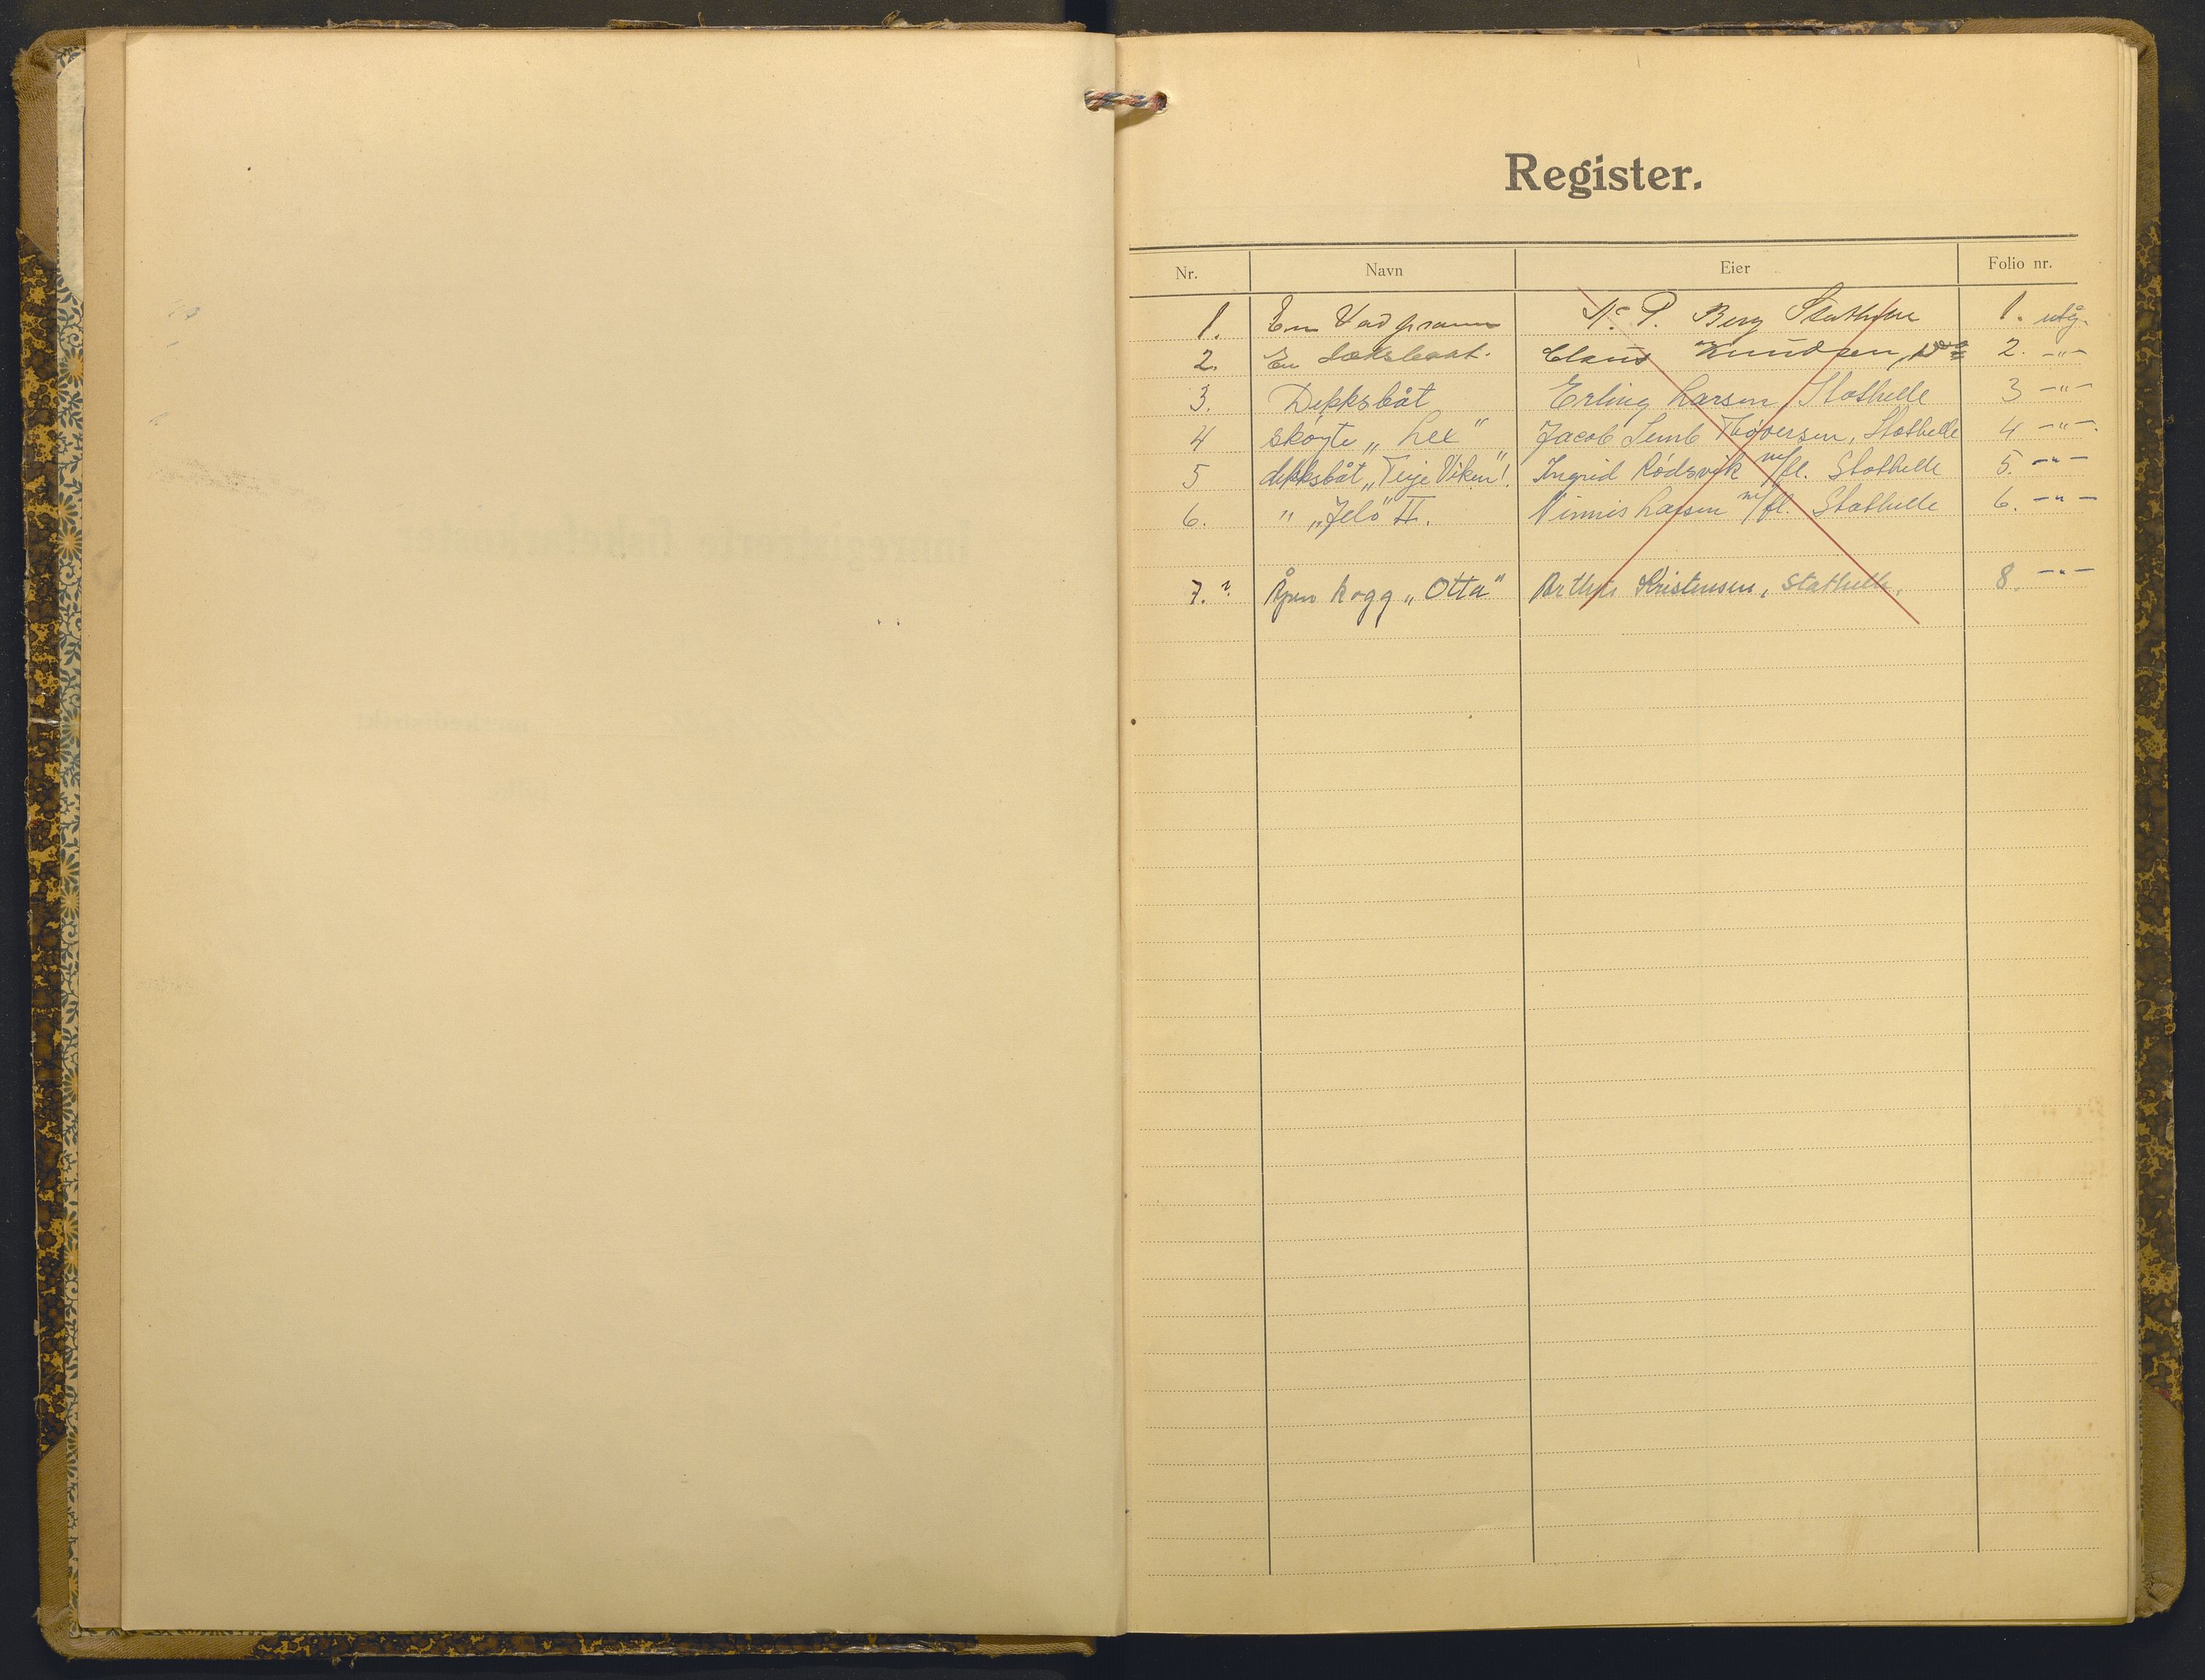 Register.
Nr. Navn Eier Folio nr.
1. En Vadpram P. Berg Stathelle 1. utg.
2. En Dæksbaat. Claus Knudsen, do 2. -"-
3. Dekksbåt Erling Larsen, Stathelle 3 -"-
4 Skøyte „Lex" Jacob Lemb Thoversen, Stathelle 4 -"-
5 dekksbåt „Terje Viken". Ingrid Rødsvik m/fl. Stathelle 5. -"-
6. " „Jelø" II. Larsen m/fl. Stathelle 6. -"-
7. Åpen kogg „Otta" Arthur Kristensen, Stathelle. 8. -"-